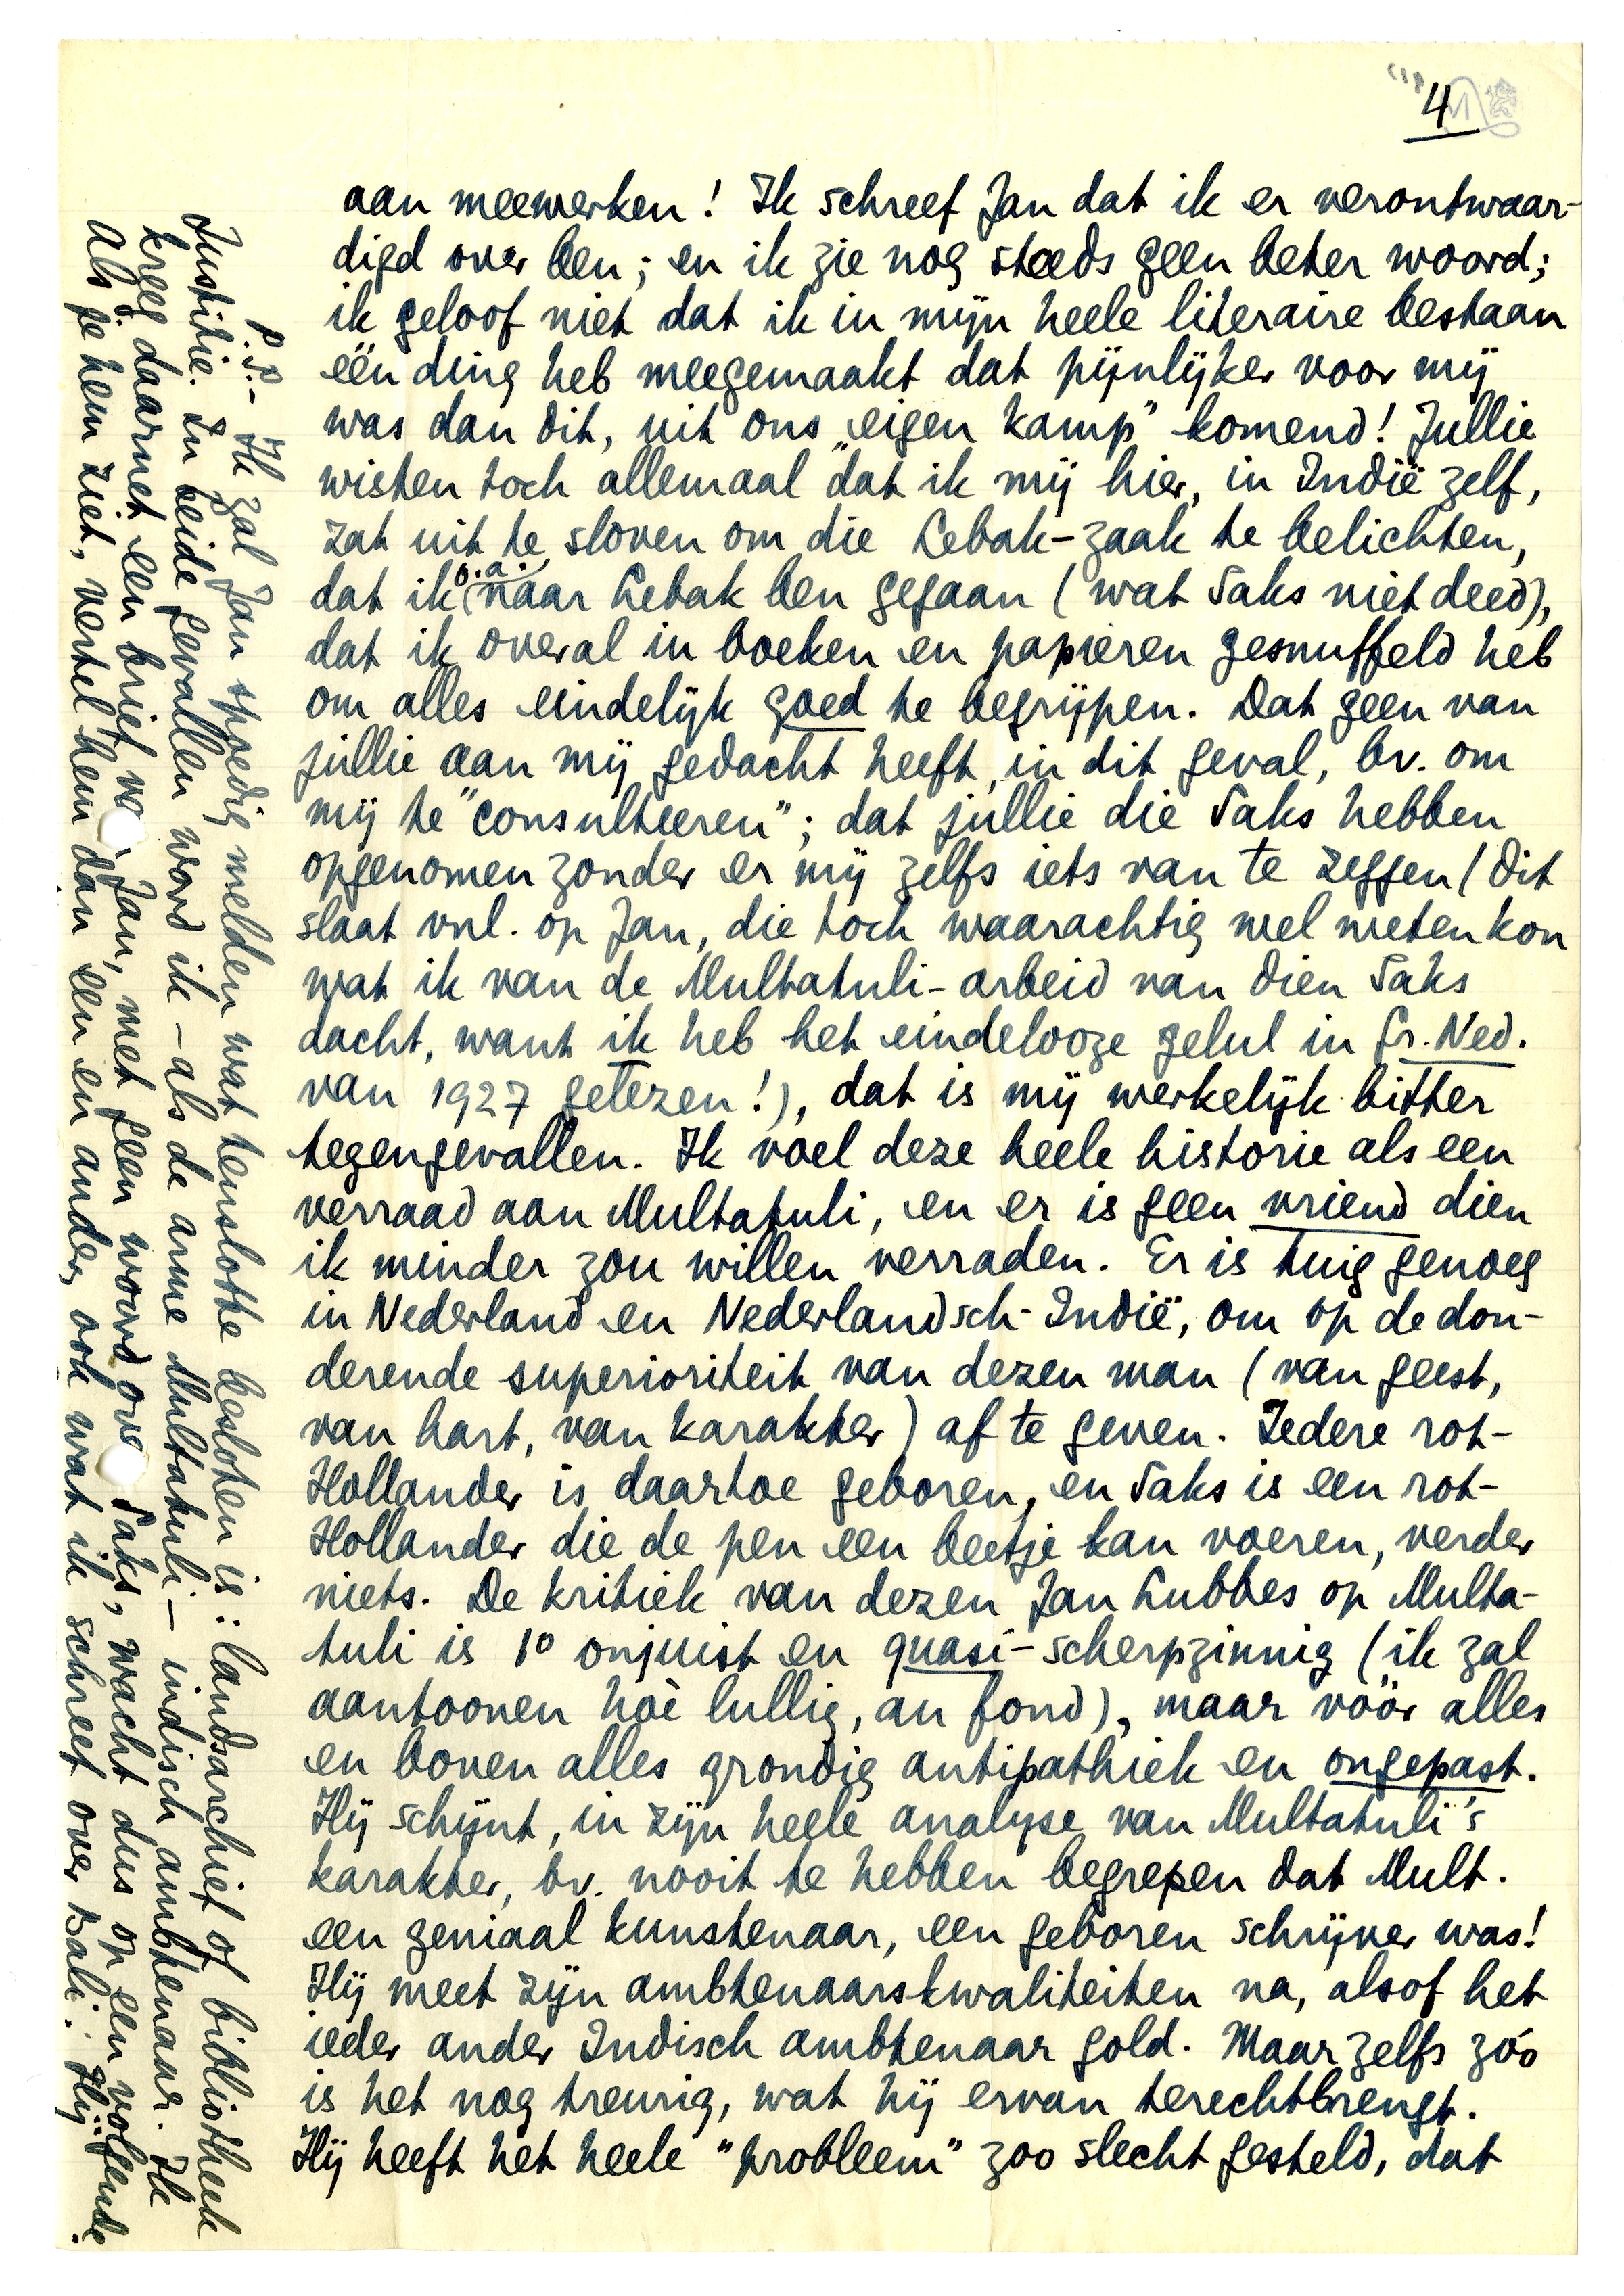 4
aan meewerken! Ik schreef Jan dat ik er verontwaar-
digd over ben; en ik zie nog steeds geen beter woord;
ik geloof niet dat ik in mijn heele literaire bestaan
één ding heb meegemaakt dat pijnlijker voor mij
was dan dit, uit ons „eigen kamp" komend! Jullie
wisten toch allemaal dat ik mij hier, in Indië zelf,
zat uit te sloven om die Lebak-zaak te belichten,
dat ik o.a. naar Lebak ben gegaan (wat Saks niet deed),
dat ik overal in boeken en papieren gesnuffeld heb
om alles eindelijk goed te begrijpen. Dat geen van
jullie aan mij gedacht heeft, in dit geval, bv. om
mij te "consulteeren"; dat jullie die Saks hebben
opgenomen zonder er mij zelfs iets van te zeggen (dit
slaat vnl. op Jan, die toch waarachtig wel weten kon
wat ik van de Multatuli-arbeid van dien Saks
dacht, want ik heb het eindelooze gelul in Gr. Ned.
van 1927 gelezen!), dat is mij werkelijk bitter
tegengevallen. Ik voel deze heele historie als een
verraad aan Multatuli, en er is geen vriend dien
ik minder zou willen verraden. Er is tuig genoeg
in Nederland en Nederlandsch-Indië, om op de don-
derende superioriteit van dezen man (van geest,
van hart, van karakter) af te geven. Iedere rot-
Hollander is daartoe geboren, en Saks is een rot-
Hollander die de pen een beetje kan voeren, verder
niets. De kritiek van dezen Jan Lubbes op Multa-
tuli is 1° onjuist en quasi-scherpzinnig (ik zal
aantoonen hoè lullig, au fond), maar vóór alles
en boven alles grondig antipathiek en ongepast.
Hij schijnt, in zijn heele analyse van Multatuli's
karakter, bv. nooit te hebben begrepen dat Mult.
een geniaal kunstenaar, een geboren schrijver was!
Hij meet zijn ambtenaarskwaliteiten na, alsof het
ieder ander Indisch ambtenaar gold. Maar zelfs zóó
is het nog treurig, wat hij ervan terechtbrengt.
Hij heeft het heele "probleem" zoo slecht gesteld, dat
P.S. - Ik zal Jan spoedig melden wat tenslotte besloten is: landsarchief of bibliotheek
Justitie. In beide gevallen word ik - als de arme Multatuli - indisch ambtenaar. Ik
kreeg daarnet een brief Jan, met geen woord Saks, wacht dus op een volgende.
Als je hem ziet, vertel hem dan een en ander, ook wat ik schreef over Bali. Hij.